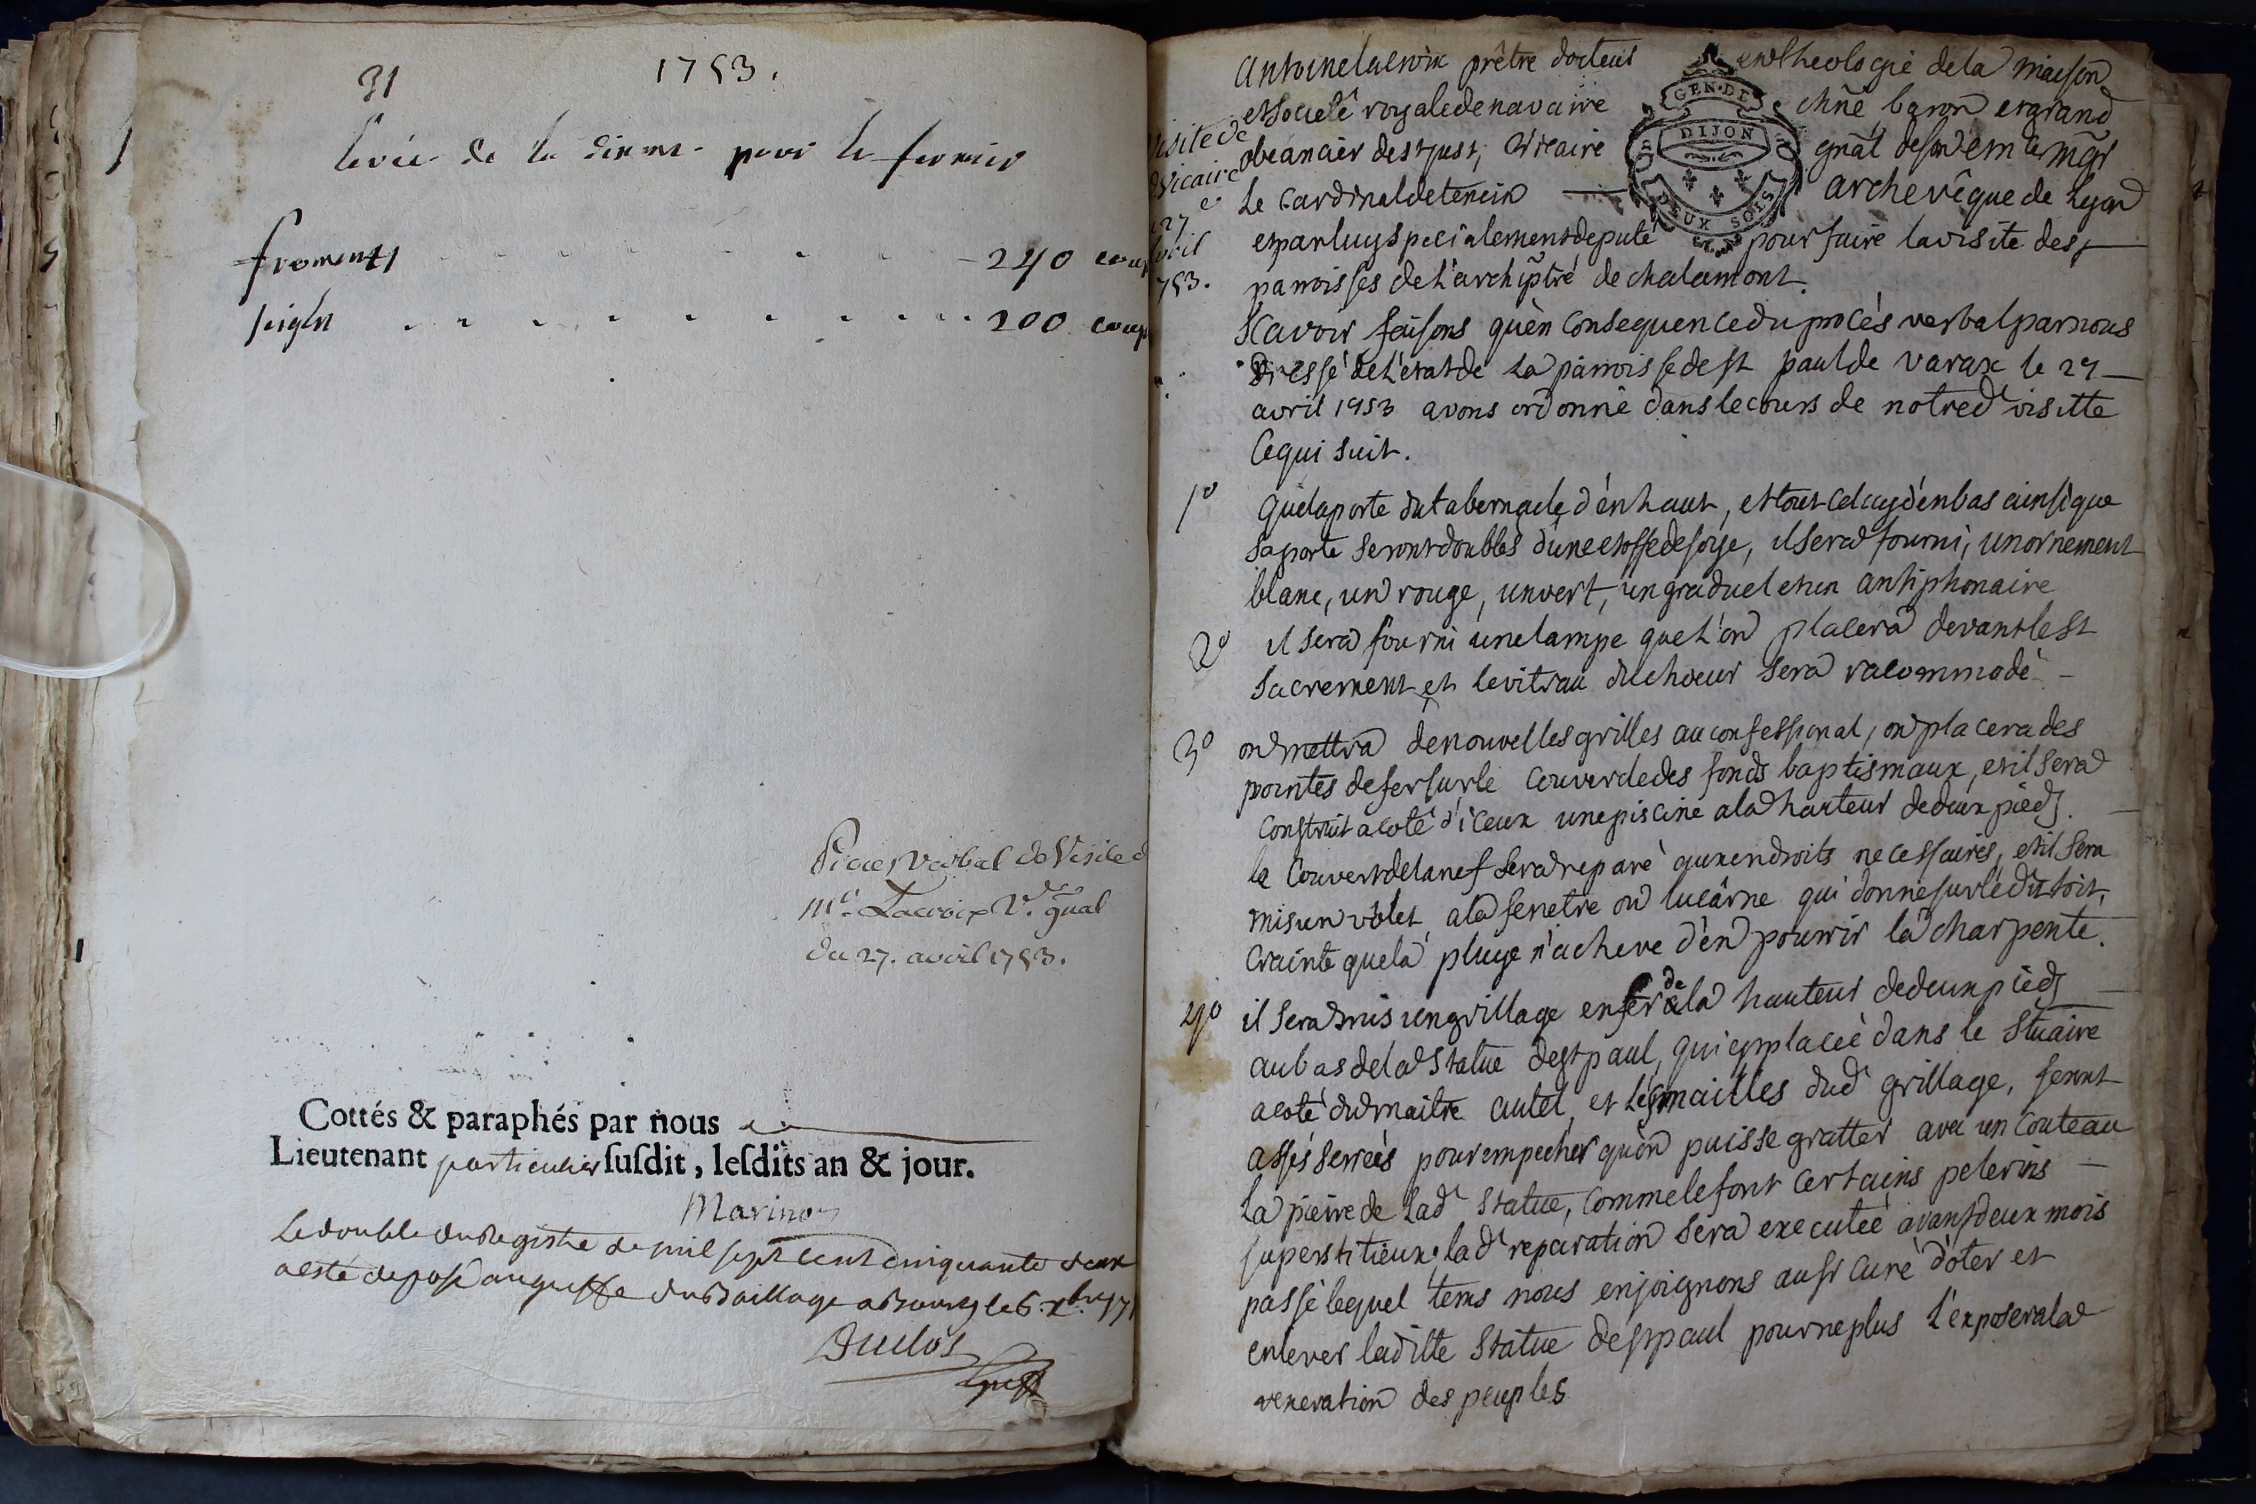 31 1753.
levée de la dixme pour le fermier
froment - - - - - - 240 coup
seigle - - - - - - - - - - 200 coup
Procès verbal de Visite d
Mre. Lacroix V. gnal
du 27. avril 1753.
Cottés & paraphés par nous
Lieutenant particulier susdit, lesdits an & jour.
Marinon
Le double du Registre de mil sept cent cinquante deux
a esté deposé au greffe du Baillage a Bourg le 6. xbre 17
Duclos
greff
visite de
Vicaire
27
avril
753.
Antoine lacroix prêtre docteur en theologie de la maison
et société royale de navarre chñe baron et grand
obeancier de st just, Vicaire gnãl de son Em ce Mgr
le Cardinal de tencin archevêque de Lyon
et par luy specialement deputé pour faire la visite des
parroisses de L'archiptré de chalamont.
Scavoir faisons qu'en consequence du procés verbal par nous
dressé de L'etat de la parroisse de st paul de varax le 27
avril 1753 avons ordonné dans le cours de notred visitte
Ce qui suit.
1º Que la porte du tabernacle d'en haut, et tout celuy d'en bas ainsi que
sa porte seront doublés d'une etoffe de soye, il sera fourni, un ornement
blanc, un rouge, un vert, un graduel et un antiphonaire
2º il sera fourni une lampe que L'on placera devant le st
Sacrement et le vitrau du choeur sera racommodé
3º on mettra de nouvelles grilles au confessional, on placera des
pointes de fer sur le couvercle des fonds baptismaux, et il sera
construit a coté d'iceux une piscine a la hauteur de deux pieds.
le Couvert de la nef sera reparé aux endroits necessaires, et il sera
mis un volet a la fenetre ou lucarne qui donne sur le du toit,
crainte que la pluye n'acheve d'en pourrir la charpente.
4º il sera mis un grillage en fer de la hauteur de deux pieds
au bas de la Statue de st paul, qui est placée dans le Stuaire
a coté du maitre autel, et les mailles dud grillage, seront
assés serrées pour empecher qu'on puisse gratter avec un couteau
la pierre de lad statue, comme le font certains pelerins
superstitieux, lad reparation sera executée avant deux mois
passé lequel tems nous enjoignons au sr curé d'oter et
enlever laditte Statue de st paul pour ne plus l'exposer a la
veneration des peuples
GEN. DE
DIJON
DEUX SOLS